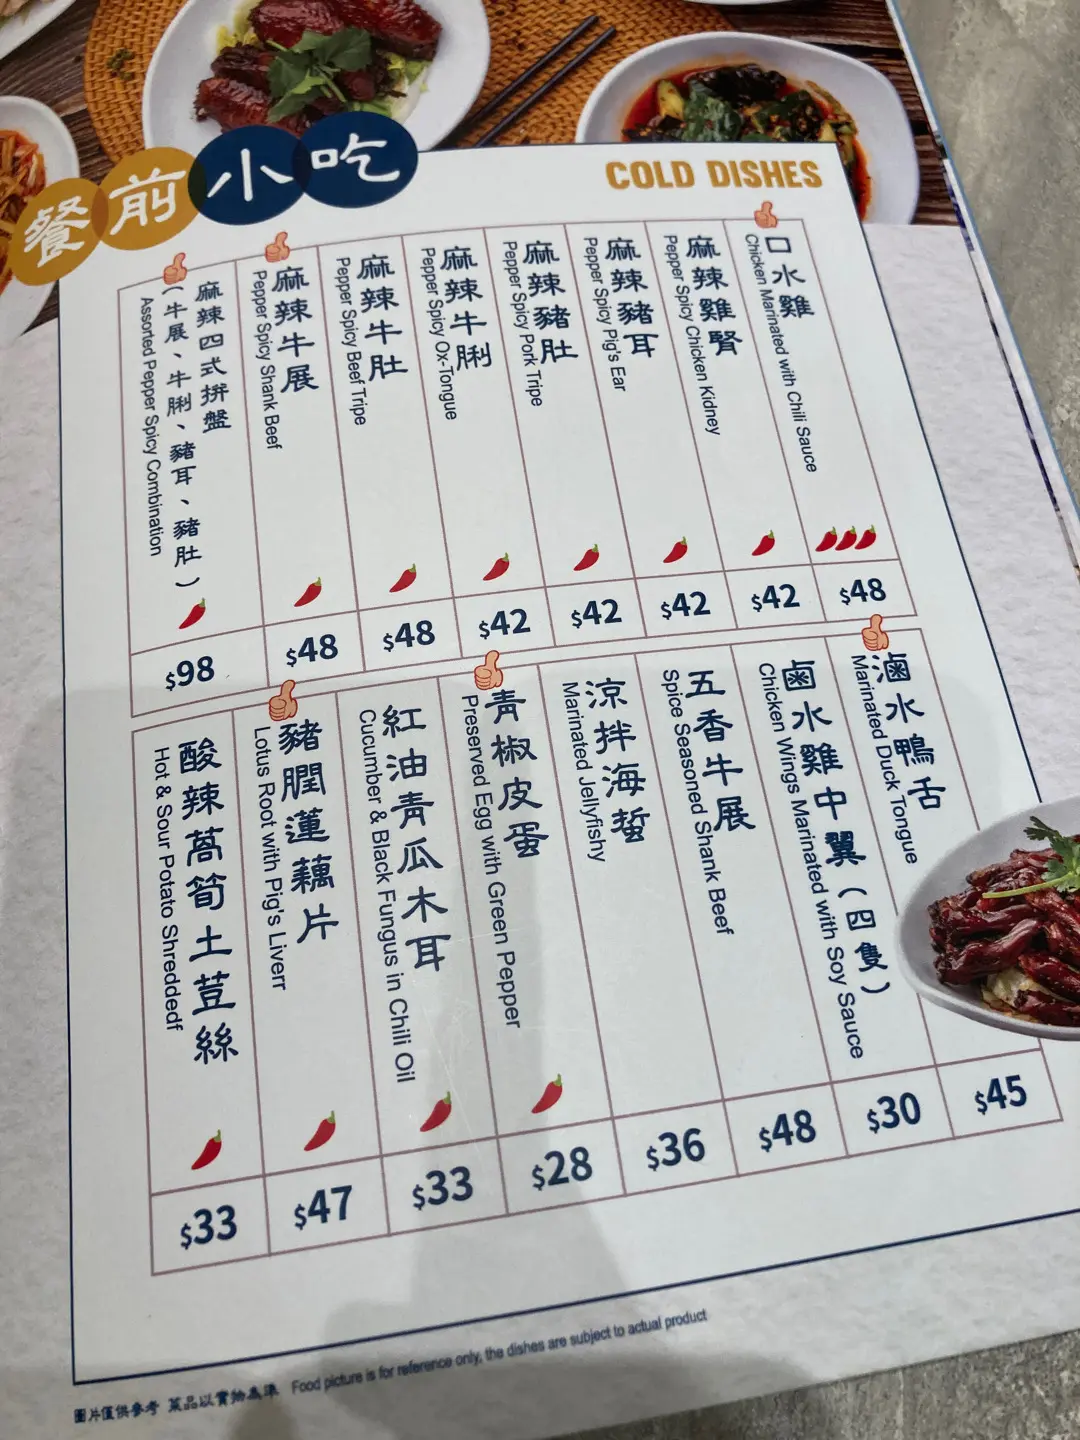 餐前小吃
COLD DISHES
口水雞
Chicken Marinated with Chili Sauce
$48
麻辣雞腎
Pepper Spicy Chicken Kidney
$42
麻辣豬耳
Pepper Spicy Pig's Ear
$42
麻辣豬肚
Pepper Spicy Pork Tripe
$42
麻辣牛脷
Pepper Spicy Ox-Tongue
$42
麻辣牛肚
Pepper Spicy Beef Tripe
$48
麻辣牛展
Pepper Spicy Shank Beef
$48
麻辣四式拼盤
(牛展、牛脷、豬耳、豬肚)
Assorted Pepper Spicy Combination
$98
滷水鴨舌
Marinated Duck Tongue
$45
鹵水雞中翼(四隻)
Chicken Wings Marinated with Soy Sauce
$30
五香牛展
Spice Seasoned Shank Beef
$48
涼拌海蜇
Marinated Jellyfishy
$36
青椒皮蛋
Preserved Egg with Green Pepper
$28
紅油青瓜木耳
Cucumber & Black Fungus in Chili Oil
$33
豬膶蓮藕片
Lotus Root with Pig's Liverr
$47
酸辣萵筍土荳絲
Hot & Sour Potato Shreddedf
$33
圖片僅供參考 菜品以實物為準 Food picture is for reference only, the dishes are subject to actual product